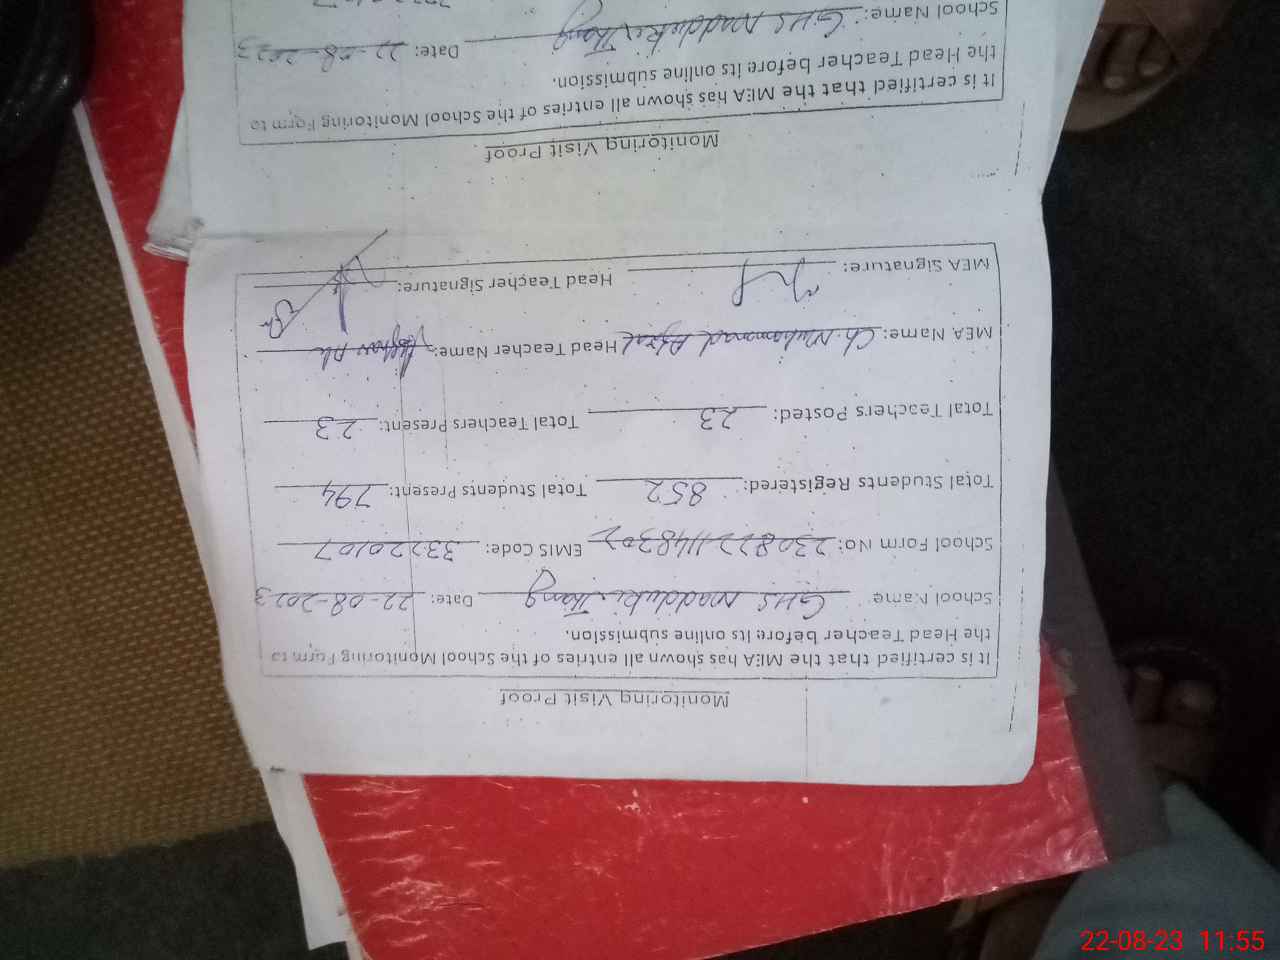 Monitoring Visit Proof
It is certified that the MEA has shown all entries of the School Monitoring Form to
the Head Teacher before its online submission.
School Name GHS Madduki Jhang Date: 22-08-2023
School Form No: EMIS Code: 33220107
Total Students Registered: 852 Total Students Present: 794
Total Teachers Posted: 23 Total Teachers Present: 23
MEA Name: Ch. Muhammad Afzal Head Teacher Name:
MEA Signature: Head Teacher Signature:
Monitoring Visit Proof
It is certified that the MEA has shown all entries of the School Monitoring Form to
the Head Teacher before its online submission.
School Name: GHS Madduki Jhang Date: 22-08-2023
22-08-23 11:55